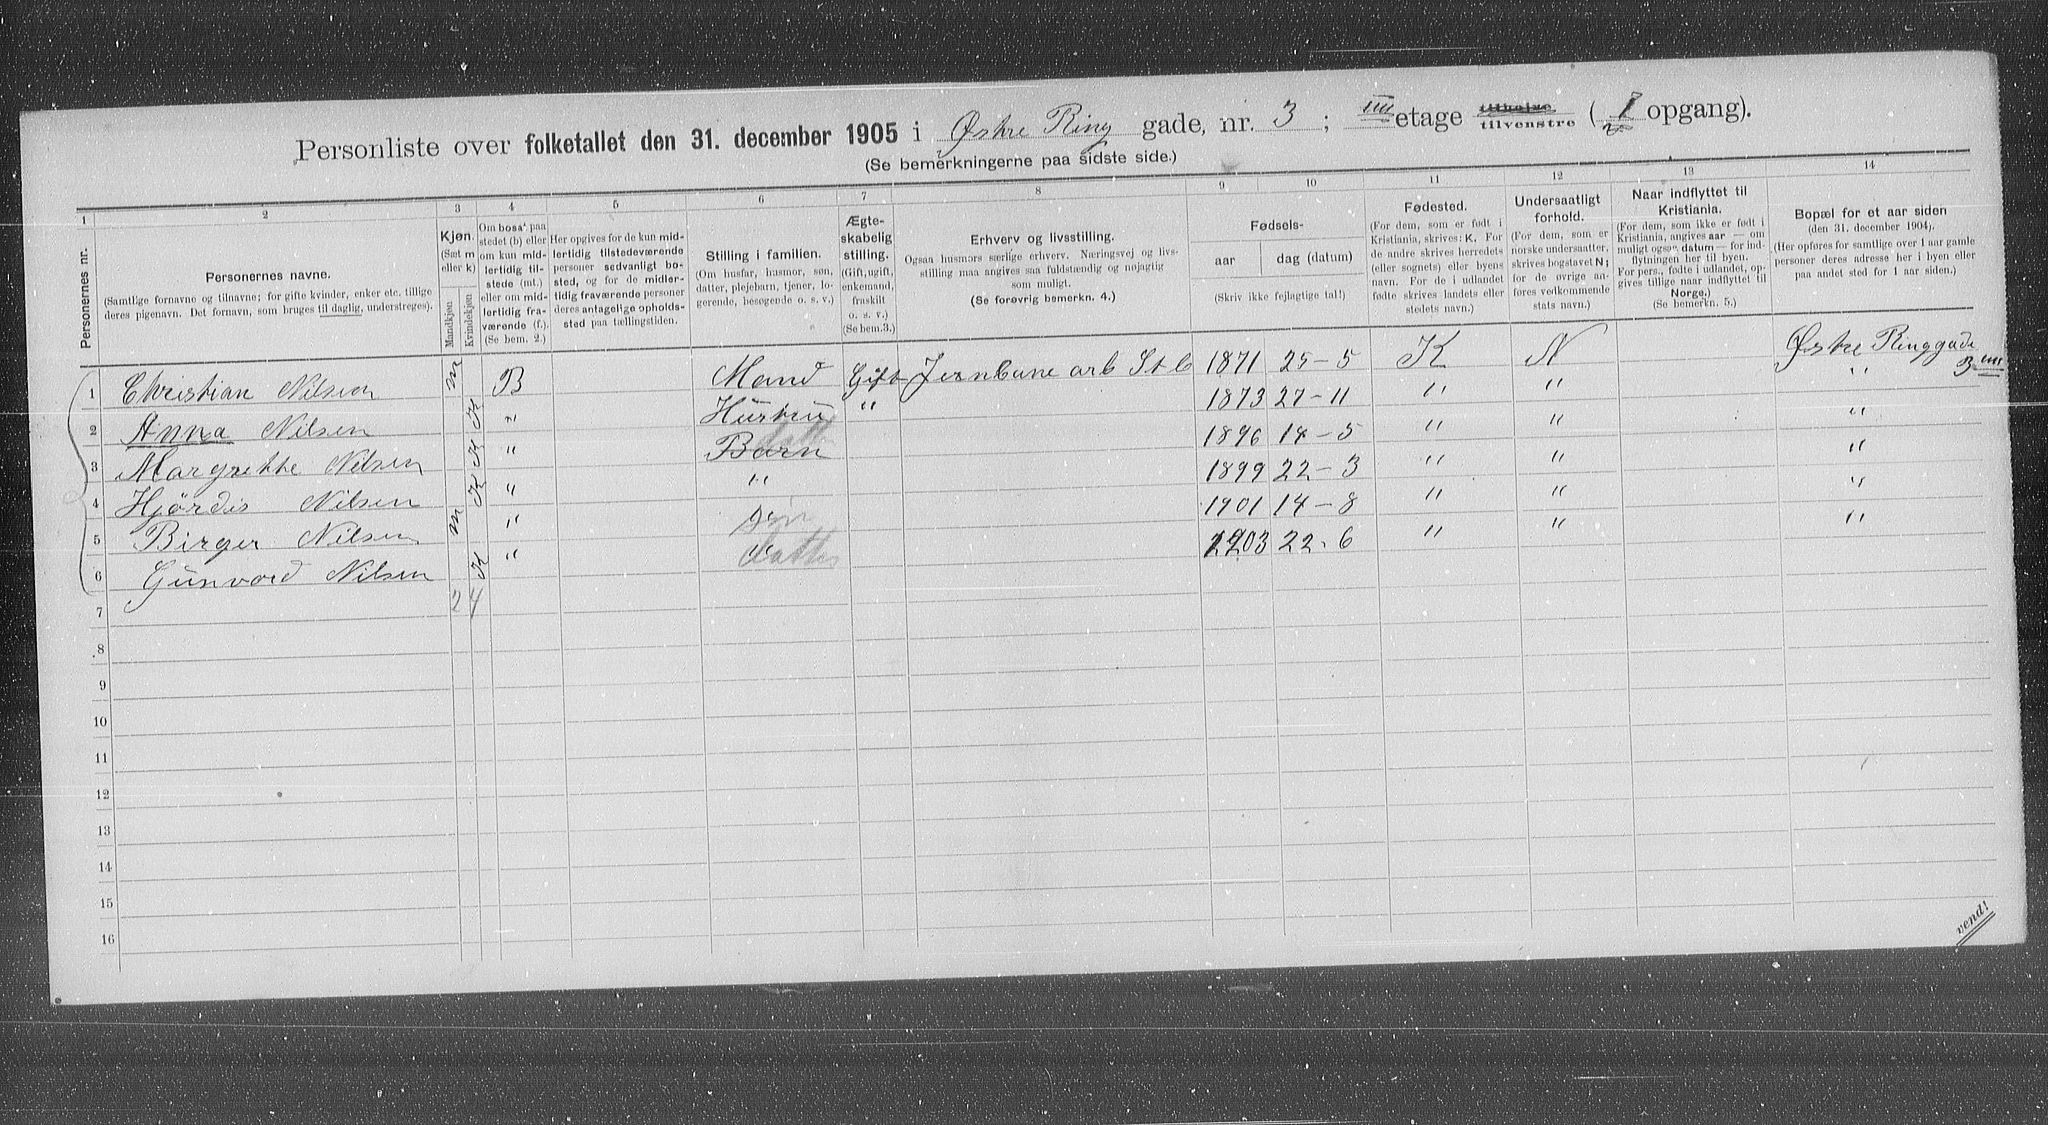 Personliste over folketallet den 31. december 1905 i Østre Ring gade, nr. 3 ; IIII etage tilhøire tilvenstre ( 1 opgang).
(Se bemerkningerne paa sidste side.)
1 2 3 4 5 6 7 8 9 10 11 12 13 14
Personernes nr.
Personernes navne.
(Samtlige fornavne og tilnavne; for gifte kvinder, enker etc. tillige
deres pigenavn. Det fornavn, som bruges til daglig, understreges).
Kjøn.
(Sæt m
eller k)
Mandkjøn
Kvindekjøn
Om bosat paa
stedet (b) eller
om kun mid-
lertidig til-
stede (mt.)
eller om mid-
lertidig fra-
værende (f.).
(Se bem. 2.)
Her opgives for de kun mid-
lertidig tilstedeværende
personer sedvanligt bo-
sted, og for de midler-
tidig fraværende personer
deres antagelige opholds-
sted paa tællingstiden.
Stilling i familien.
(Om husfar, husmor, søn,
datter, plejebarn, tjener, lo-
gerende, besøgende o. s. v.)
Ægte-
skabelig
stilling.
(Gift, ugift,
enkemand,
fraskilt
o. s. v.)
(Se bem.3.)
Erhverv og livsstilling.
Ogsaa husmors særlige erhverv. Næringsvej og livs-
stilling maa angives saa fuldstændig og nøjagtig
som muligt.
(Se forøvrig bemerkn. 4.)
Fødsels-
aar dag (datum)
(Skriv ikke fejlagtige tal!)
Fødested.
(For dem, som er født i
Kristiania, skrives: K. For
de andre skrives herredets
(eller sognets) eller byens
navn. For de i udlandet
fødte skrives landets eller
stedets navn.)
Undersaatligt
forhold.
(For dem, som er
norske undersaatter,
skrives bogstavet N;
for de øvrige an-
føres vedkommende
stats navn.)
Naar indflyttet til
Kristiania.
(For dem, som ikke er født i
Kristiania, angives aar — om
muligt ogsaa datum — for ind-
flytningen her til byen.
For pers., fødte i udlandet, op-
gives tillige naar indflyttet til
Norge.)
(Se bemerkn. 5.)
Bopæl for et aar siden
(den 31. december 1904).
(Her opføres for samtlige over 1 aar gamle
personer deres adresse her i byen eller
paa andet sted for 1 aar siden.)
1 Christian Nilsen m B Mand Gift Jernbane arb St b 1871 25-5 K N Østre Ringgade 3 IIII
2 Anna Nilsen K " Hustru " 1873 27-11 " " "
3 Margrethe Nilsen K " Barn datter 1896 14-5 " " "
4 Hjördis Nilsen K " " 1899 22-3 " " "
5 Birger Nilsen m " " søn 1901 14-8 " " "
6 Gunvord Nilsen K " " datter 1903 22-6 " " "
7 2 4
8
9
10
11
12
13
14
15
16
vend!